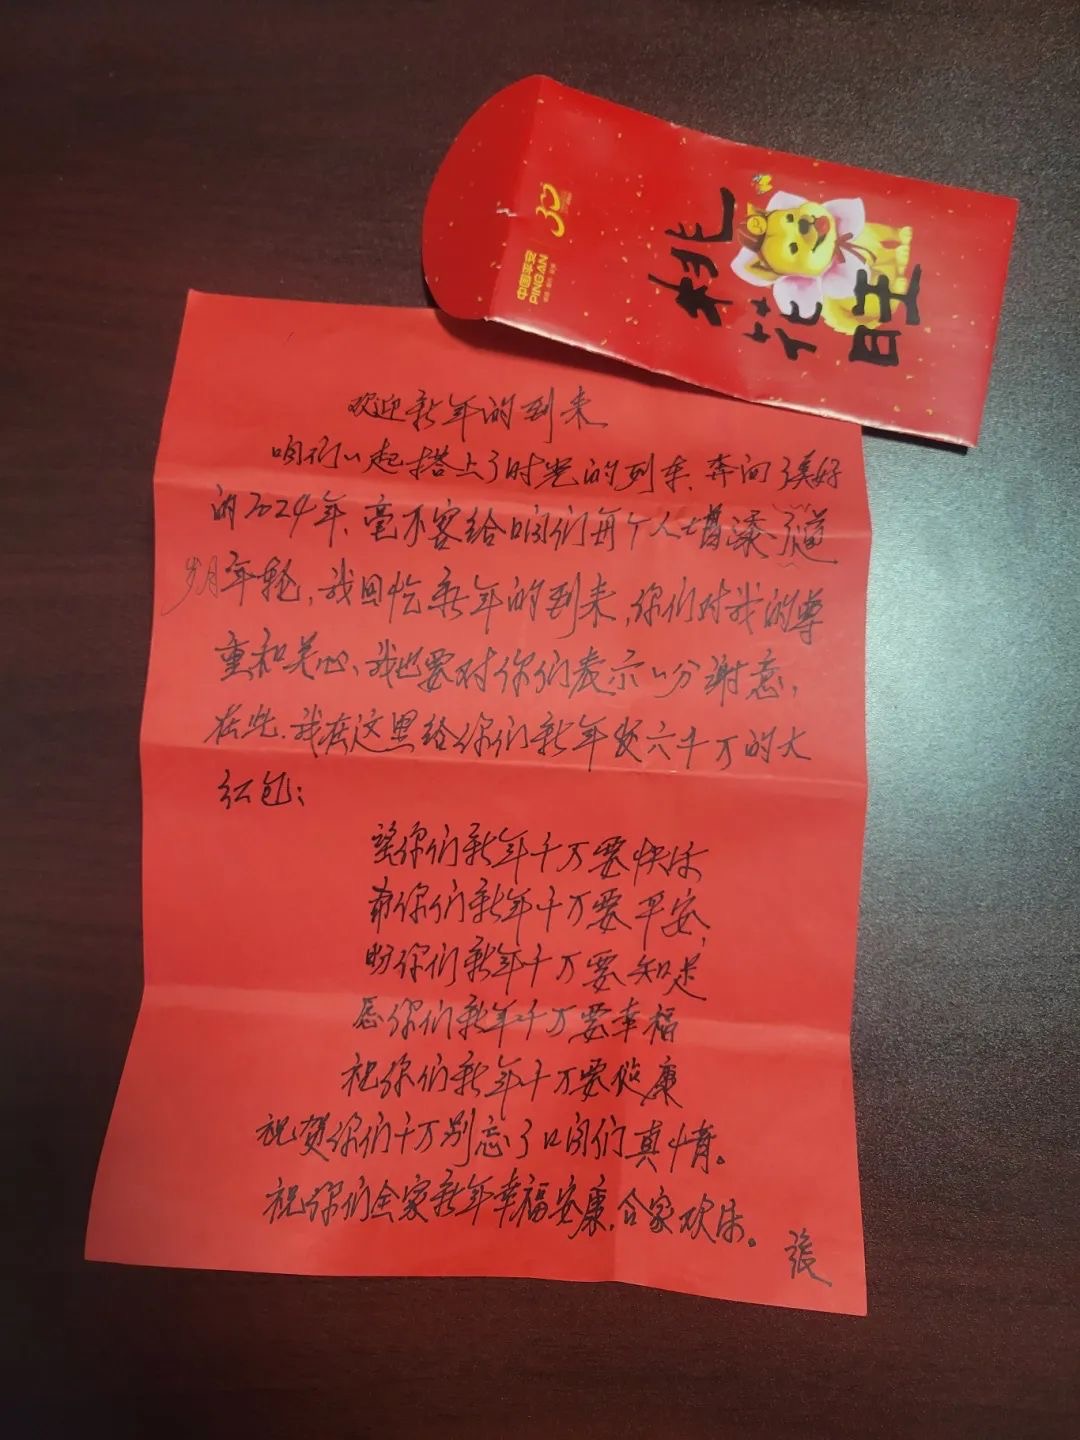 中国平安
PINGAN
30
桃花旺
欢迎新年的到来
咱们一起搭上了时光的列车、奔向了美好
的2024年、毫不客给咱们每个人增添了道
岁月年轮，我回忆新年的到来，你们对我的尊
重和关心、我也要对你们表示一分谢意，
在此、我在这里给你们新年发六千万的大
红包：
望你们新年千万要快乐
希你们新年千万要平安，
盼你们新年千万要知足
愿你们新年千万要幸福
祝你们新年千万要健康
祝贺你们千万别忘了咱们真情。
祝你们全家新年幸福安康，合家欢乐。
張